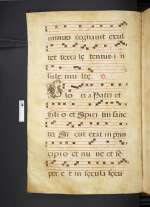 minus regnavit exul
tet terra letentur in
sule mul te
Glo ri a Patri et
Fili o et Spiri tui sanc
to Sic ut erat in prin
cipi o et nunc et se
per et in secula secu